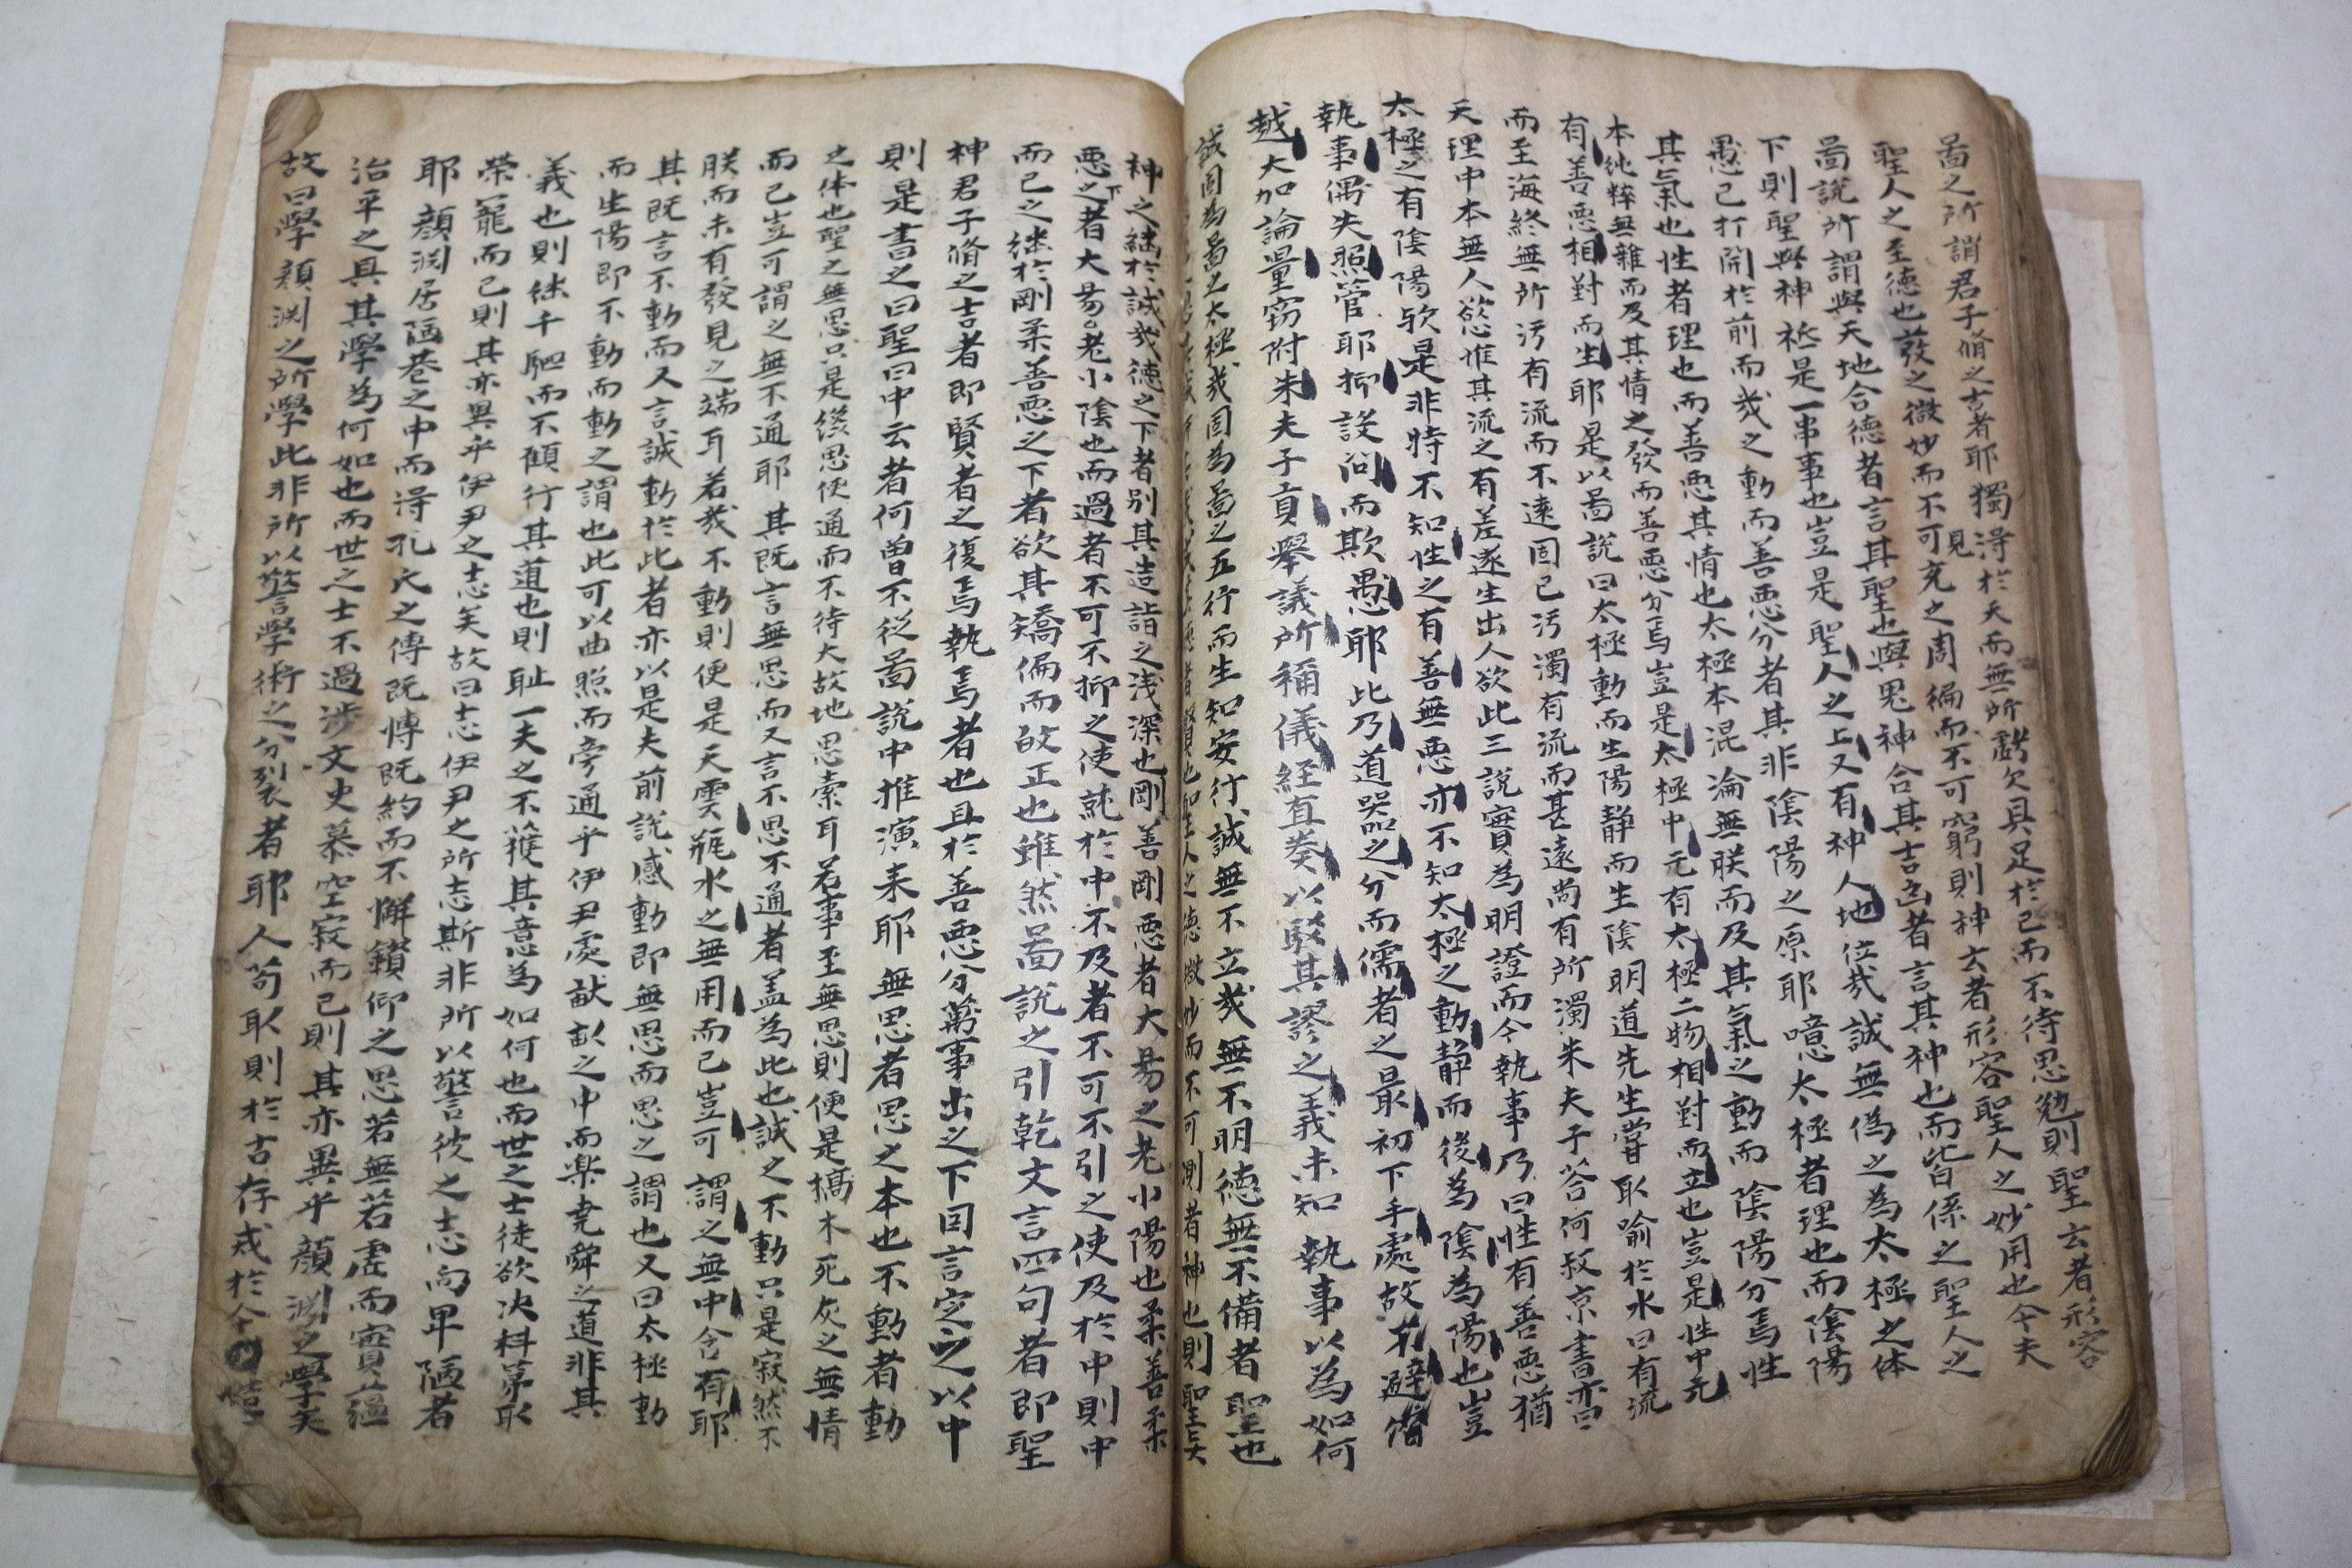 啚之所謂君子脩之吉者耶獨得於天而無所虧欠具足於己而不待思勉則聖云者形容
聖人之至德也發之微妙而不可見充之周徧而不可窮則神云者形容聖人之妙用也今夫
啚說所謂與天地合德者言其聖也與鬼神合其吉凶者言其神也而皆係之聖人之
下則聖與神秖是一串事也豈是聖人之上又有神人地位哉誠無僞之為太極之体
愚已打開於前而幾之動而善惡分者其非陰陽之原耶噫太極者理也而陰陽
其氣也性者理也而善惡其情也太極本混淪無朕而及其氣之動而陰陽分焉性
本純粹無雜而及其情之發而善惡分焉豈是太極中元有太極二物相對而立也豈是性中元
有善惡相對而生耶是以啚說曰太極動而生陽靜而生陰明道先生嘗取喻於水曰有流
而至海終無所污有流而不遠固已污濁有流而甚遠尚有所濁朱夫子答何叔京書亦曰
天理中本無人慾惟其流之有差遂生出人欲此三說實為明證而今執事乃曰性有善惡猶
太極之有陰陽欤是非特不知性之有善無惡亦不知太極之動靜而後為陰為陽也豈
執事偶失照管耶抑設問而欺愚耶此乃道器之分而儒者之最初下手處故不避僭
越大加論量窃附朱夫子貢擧議所稱儀經直奏以駁其謬之義未知執事以為如何
誠固為啚之太極幾固為啚之五行而生知安行誠無不立幾無不明德無不備者聖也
神之継於誠幾德之下者别其造詣之浅深也剛善剛惡者大昜之老小陽也柔善柔
惡之者大昜之老小陰也而過者不可不抑之使就於中不及者不可不引之使及於中則中
而已之継於剛柔善惡之下者欲其矯偏而㪅正也雖然啚說之引乾文言四句者即聖
神君子脩之吉者即賢者之復焉執焉者也且於善惡分萬事出之下因言定之以中
則是書之曰聖曰中云者何曾不從啚說中推演来耶無思者思之本也不動者動
之体也聖之無思只是纔思便通而不待大故地思索耳若事至無思則便是槁木死灰之無情
而已豈可謂之無不通耶其既言無思而又言不思不通者盖為此也誠之不動只是寂然不
朕而未有發見之端耳若幾不動則便是天雲瓶水之無用而已豈可謂之無中含有耶
其既言不動而又言誠動於此者亦以是夫前說感動即無思而思之謂也又曰太極動
而生陽即不動而動之謂也此可以曲照而旁通乎伊尹處畎畝之中而楽尭舜之道非其
義也則継千駟而不顧行其道也則耻一夫之不獲其意為如何也而世之士徒欲决科第取
榮寵而已則其亦異乎伊尹之志矣故曰志伊尹之所志斯非所以警彼之志向卑陋者
耶顏渊居陋巷之中而得孔氏之傳既博既約而不懈鑽仰之思若無若虛而實蕴
治平之具其學為何如也而世之士不過涉文史慕空寂而已則其亦異乎顏渊之學矣
故曰學顏渊之所學此非所以警學術之分裂者耶人苟取則於古存戒於今